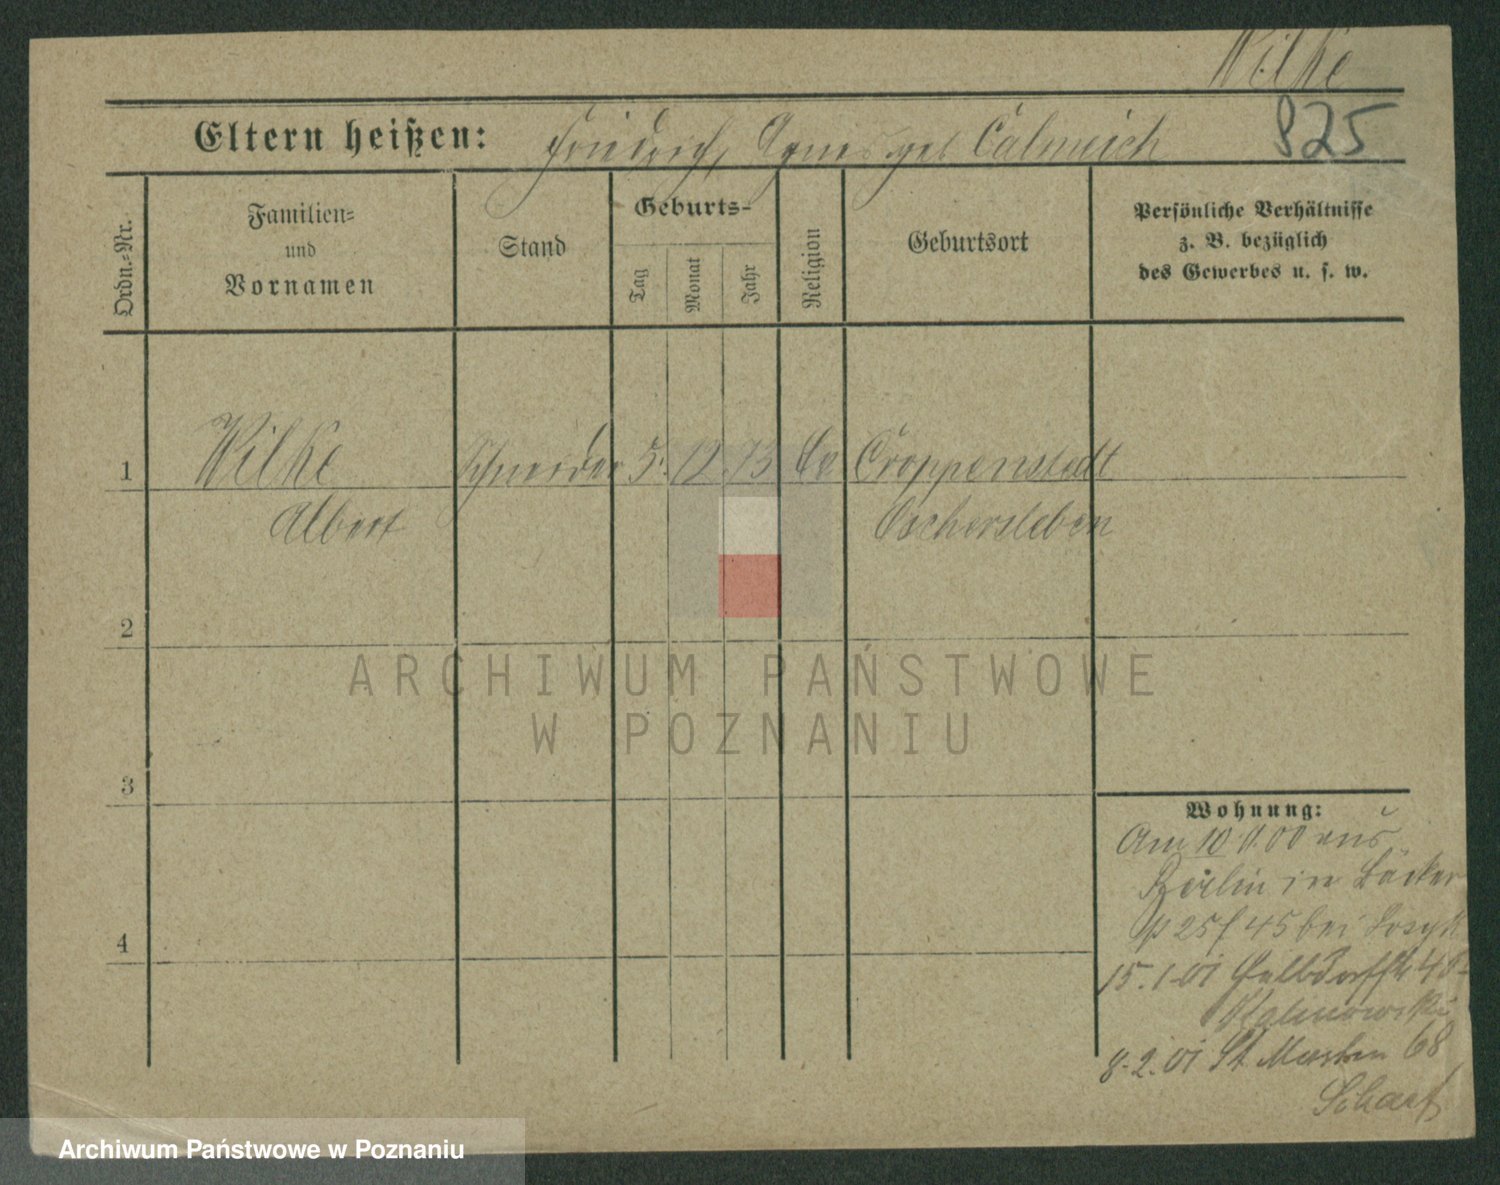 Wilke
Eltern heißen: Friedrich, Agnes geb Calmeich
925
Ordn.-Nr.
Familien-
und
Vornamen
Stand
Geburts-
Tag
Monat
Jahr
Religion
Geburtsort
Persönliche Verhältnisse
z. B. bezüglich
des Gewerbes u. s. w.
1 Wilke Schneider 5. 12. 75 Ev Croppenstedt
Albert Oschersleben
2
3
4
ARCHIWUM PAŃSTWOWE
W POZNANIU
Wohnung:
Am 10 00 aus
Berlin in Bäcker
25 45 bei
15.1.01 48
8.2.01 St Martin 68
Scharf
Archiwum Państwowe w Poznaniu